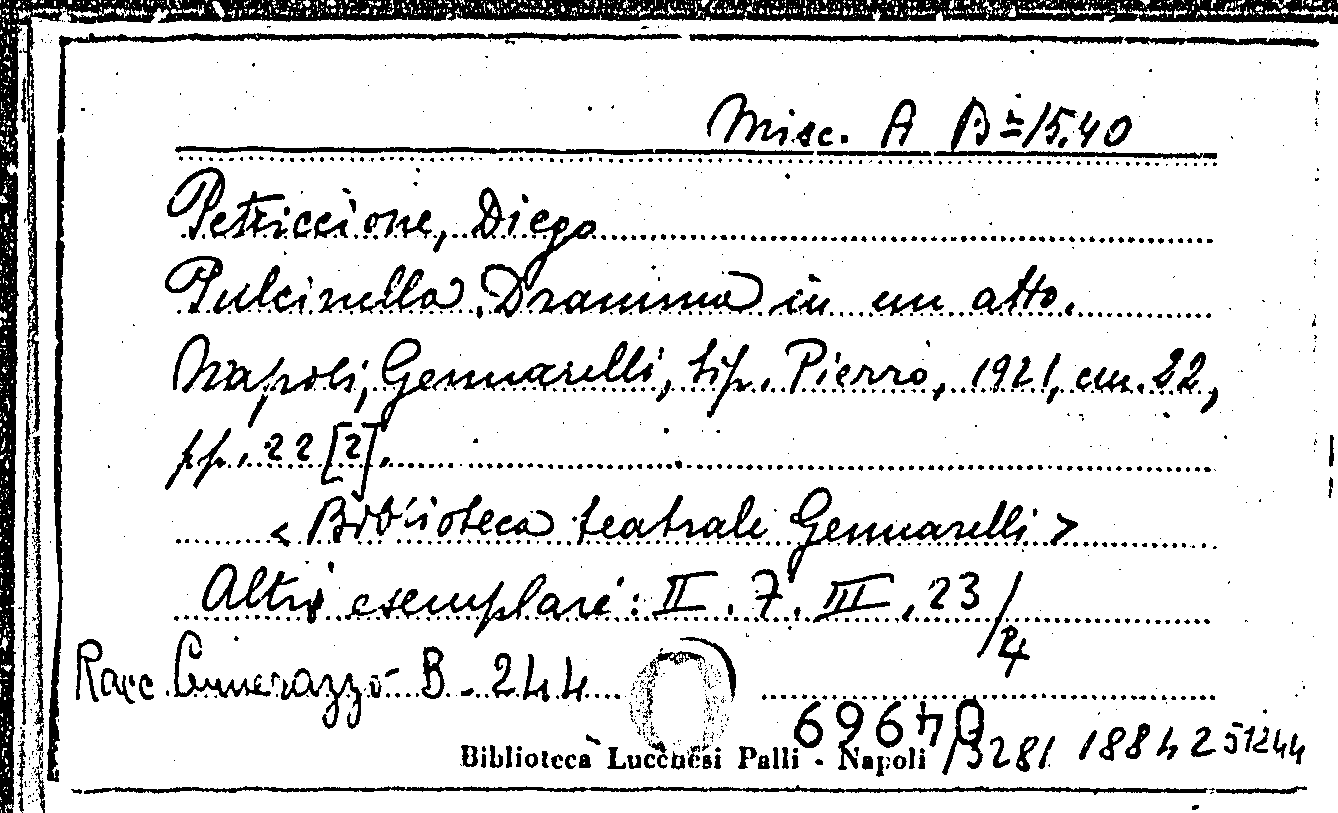 Misc. A Bᵃ 15.40
Petriccione, Diego
Pulcinella. Dramma in un atto.
Napoli, Gennarelli, tip. Pierro, 1921, cm. 22,
pp. 22 [2].
< Biblioteca teatrale Gennarelli >
Altri esemplari: II. 7. III. 23/
Racc B. 244
69640
Biblioteca Lucchesi Palli - Napoli 18842 51244